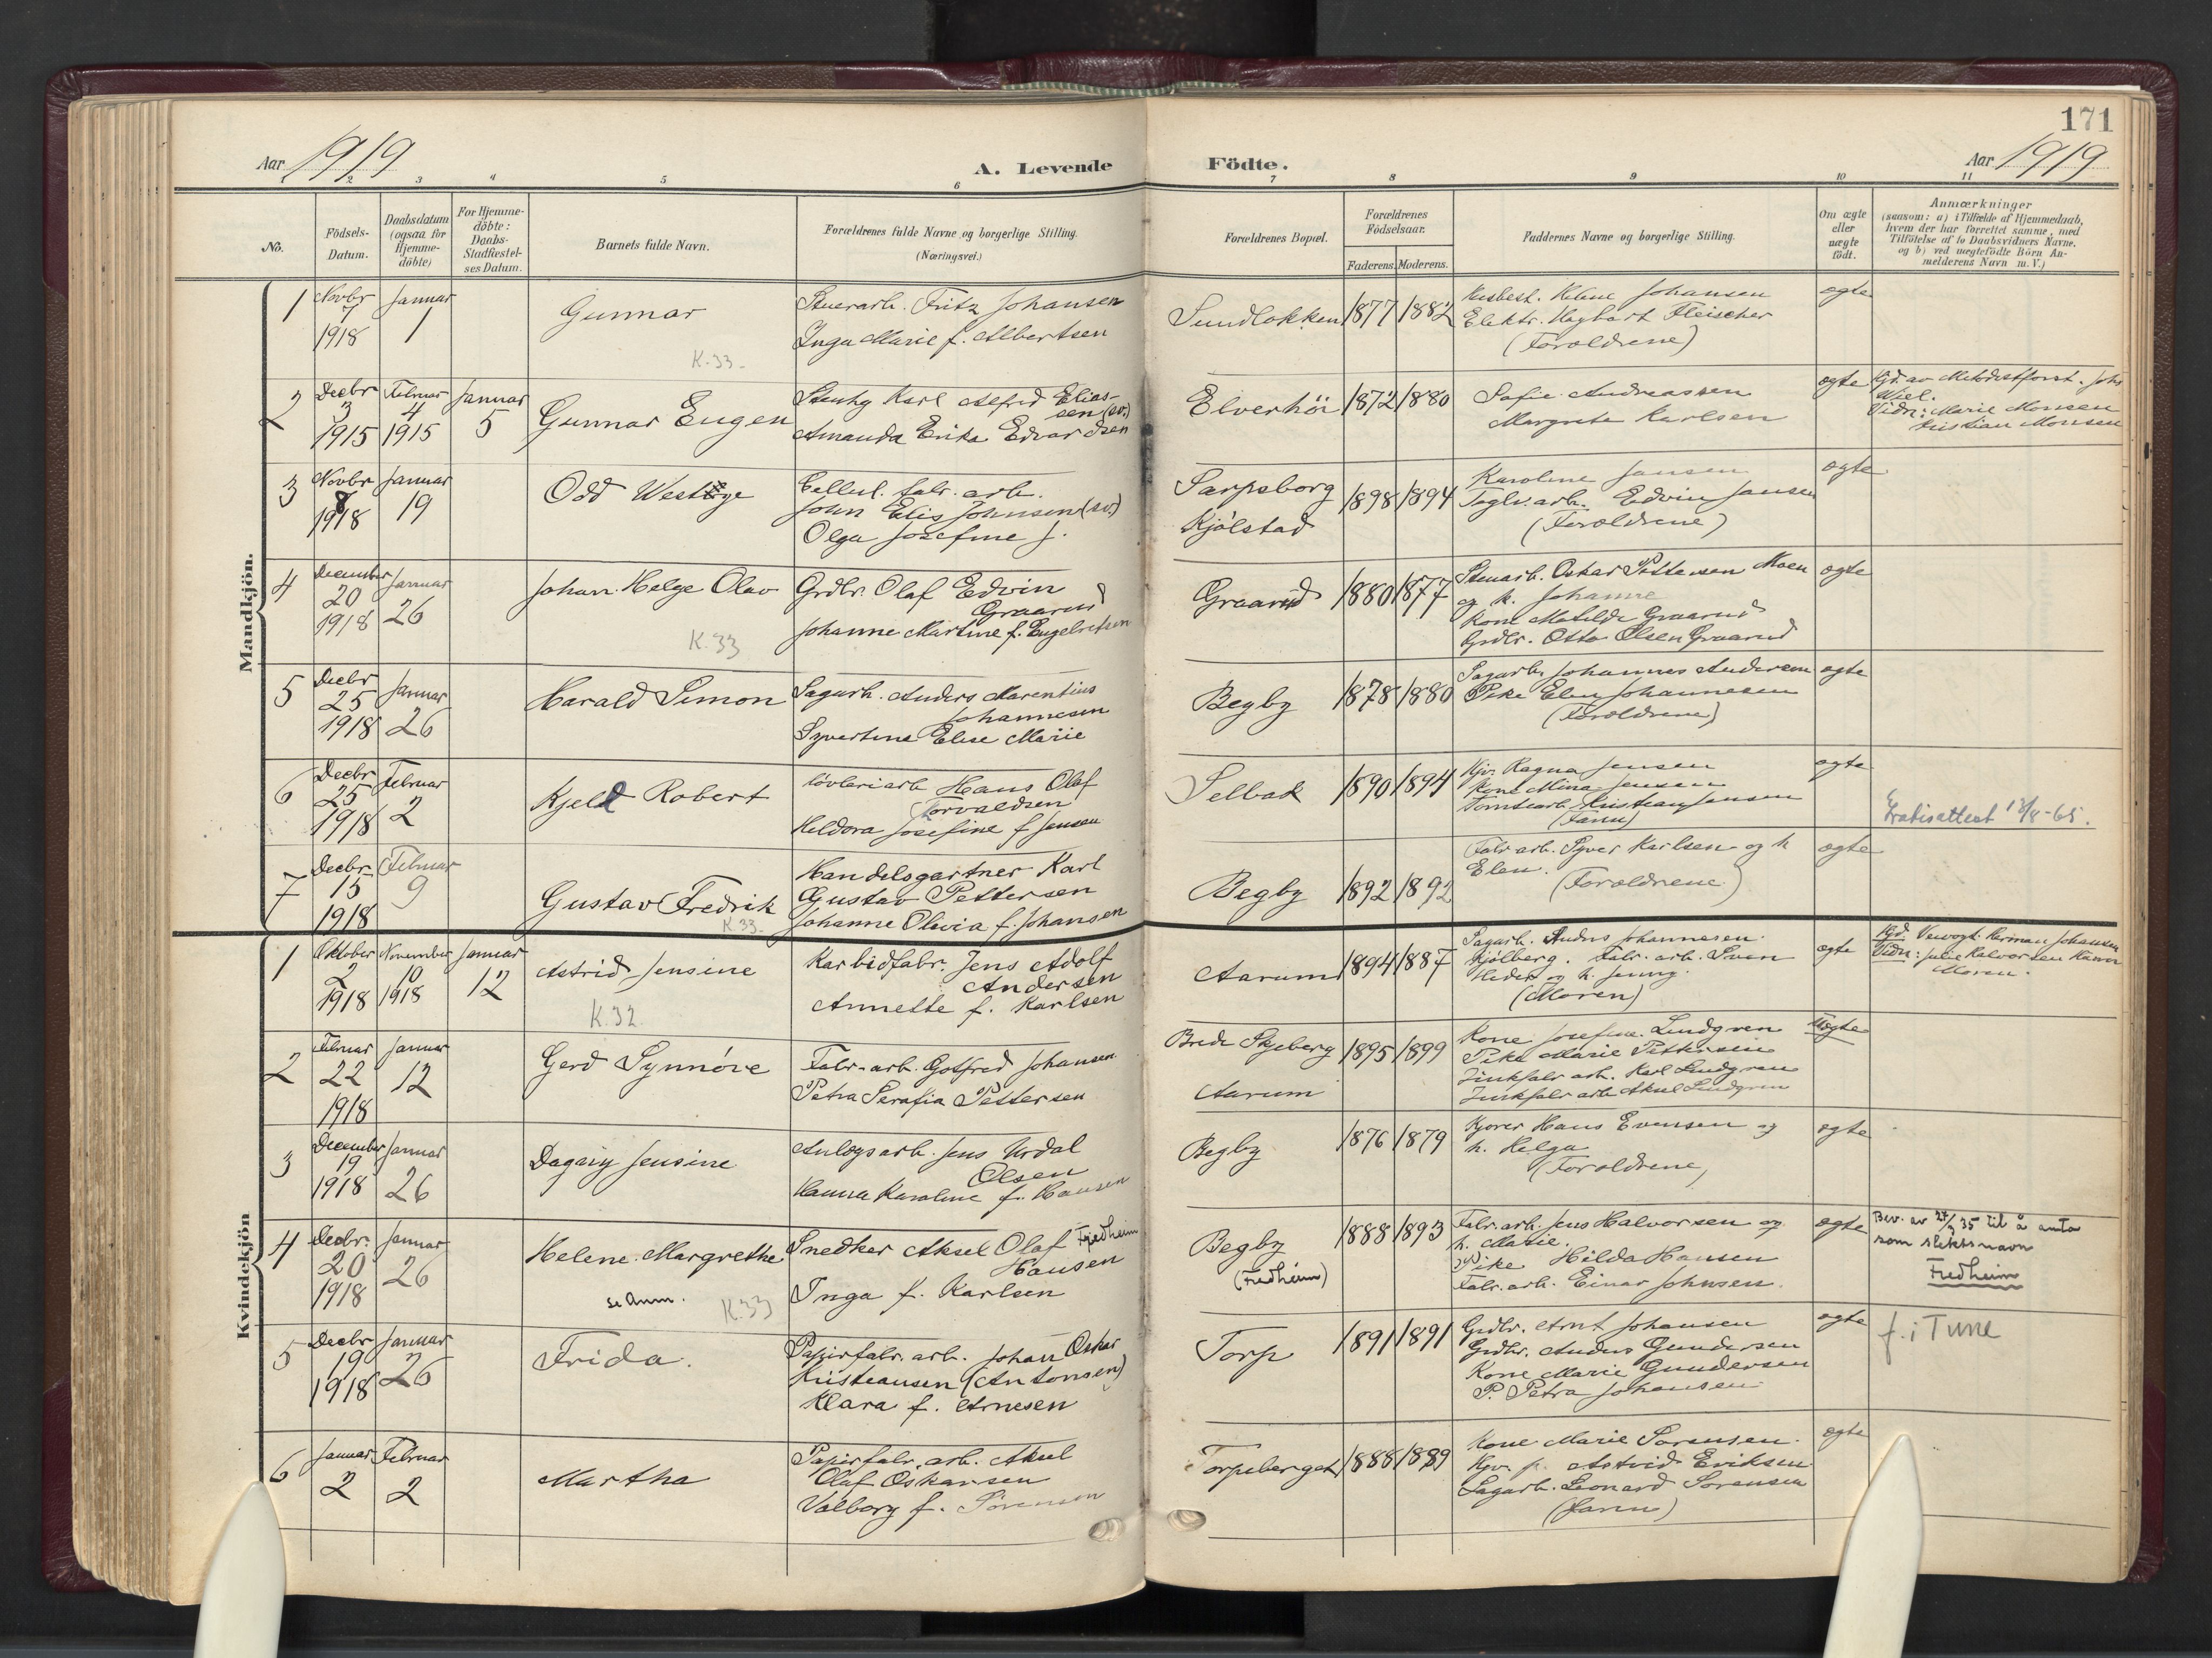 171
Aar 1919
A. Levende
Födte.
Aar 1919
1 2 3 4 5 6 7 8 9 10 11
No.
Födsels-
Datum.
Daabsdatum
(ogsaa for
Hjemme-
döbte)
For Hjemme-
döbte:
Daabs-
Stadfæstel-
ses Datum.
Barnets fulde Navn.
Forældrenes fulde Navne og borgerlige Stilling.
(Næringsvei.)
Forældrenes Bopæl.
Forældrenes
Födselsaar.
Faderens. Moderens.
Faddernes Navne og borgerlige Stilling.
Om ægte
eller
uægte
födt.
Anmærkninger
(saasom: a) i Tilfælde af Hjemmedaab,
hvem der har forrettet samme, med
Tilföielse af to Daabsvidners Navne,
og b) ved uægtefödte Börn An-
melderens Navn m. V.)
Mandkjön.
1
Novbr
7
1918
Januar
1
Gunnar
K. 33
Stuerarb. Fritz Johansen
Inga Marie f. Albertsen
Sundløkken
1877 1882
Helene Johansen
Elektr. Hagbart Fleischer
(Forældrene)
ægte
2
Decbr
3
1915
Februar
4
1915
Januar
5
Gunnar Eugen
Stenhg Karl Alfred Elias-
sen (sv.)
Amanda Erika Edvardsen
Elverhöi
1872 1880
Sofie Andreassen
Margrete Karlsen
ægte
Hjd. av Metodistforst. Johs
Wiel.
Vidn: Marie Monsen
Kristian Monsen
3
Novbr
8
1918
Januar
19
Odd Westøye
Cellul. fabr. arb.
John Elis Johnsen (sv.)
Olga Josefine J.
Sarpsborg
Kjölstad
1898 1894
Karoline Jansen
Teglv. arb. Edvin Jansen
(Forældrene)
ægte
4
December
20
1918
Januar
26
Johan Helge Olav
K. 33
Grdbr. Olaf Edvin
Graarud
Johanne Martine f. Engebretsen
Graarud
1880 1877
Stenarb. Oskar Pettersen Moen
og h. Johanne
Kone Matilde Graarud
Grdbr. Otto Olsen Graarud
ægte
5
Decbr
25
1918
Januar
26
Harald Simon
Sagarb. Anders Marentius
Johannesen
Syvertine Elise Marie
Begby
1878 1880
Sagarb. Johannes Andersen
Pike Elen Johannesen
(Forældrene)
ægte
6
Decbr
25
1918
Februar
2
Kjeld Robert
Høvleriarb Hans Olaf
Torvaldsen
Heldora Josefine f Jensen
Selbak
1890 1894
Hjv. Ragna Jensen
Kone Mina Jensen
Tomtearb. Kristian Jensen
(Faren)
ægte
Gratisattest 12/8-65.
7
Decbr
15
1918
Februar
9
Gustav Fredrik
K. 33
Handelsgartner Karl
Gustav Pettersen
Johanne Olivia f. Johansen
Begby
1892 1892
Fabr arb. Syver Karlsen og h
Elen.
(Forældrene)
ægte
Kvindekjön
1
Oktober
2
1918
November
10
1918
Januar
12
Astrid Jensine
K. 32
Karbidfabr. Jens Adolf
Andersen
Annette f. Karlsen
Aarum
1894 1887
Sagarb. Anders Johannesen
Kjölberg. Fabr. arb. Sven
Heder og h. Jenny.
(Moren)
ægte
Hjd. Veivogt. Herman Johansen
Vidn: Julie Halvorsen
Moren.
2
Februar
22
1918
Januar
12
Gerd Synnöve
Fabr. arb. Gotfred Johansen
Petra Serafia Pettersen
Brede Skjeberg
Aarum
1895 1899
Kone Josefine Lindgren
Pike Marie Pettersen
Zinkfabr arb. Karl Lindgren
Zinkfabr arb Aksel Lindgren
Uægte
3
December
19
1918
Januar
26
Dagny Jensine
Anlægsarb. Jens Urdal
Olsen
Hanna Karoline f. Hansen
Begby
1876 1879
Kjører Hans Evensen og
h. Helga
(Forældrene)
ægte
4
Decbr.
20
1918
Januar
26
Helene Margrethe
se Anm.
K. 33
Snedker Aksel Olaf Fredheim
Hansen
Inga f. Karlsen
Begby
(Fredheim)
1888 1893
Fabr. arb. Jens Halvorsen og
h. Marie.
Pike Hilda Hansen
Fabr. arb. Einar Johnsen.
ægte
Bev. av 27/2 35 til å anta
som slektsnavn
Fredheim
5
Decbr
19
1918
Januar
26
Frida.
Papirfabr. arb. Johan Oskar
Kristiansen (Antonsen)
Klara f. Arnesen
Torp
1891 1891
Grdbr. Arnt Johansen
Grdbr. Anders Gundersen
Kone Marie Gundersen
P. Petra Johansen
ægte
f. i Tune
6
Januar
2
Februar
2
Martha
Papirfabr. arb. Aksel
Olaf Oskarsen
Valborg f. Sörensen
Torpeberget
1888 1889
Kone Marie Sörensen
Hjv. p. Astrid Eriksen
Sagarb. Leonard Sörensen
(Faren)
ægte